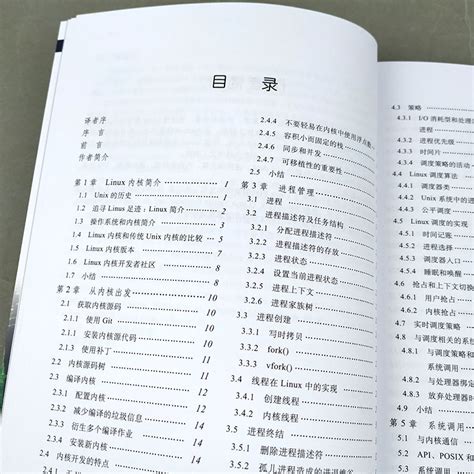 目 录
译者序
序 言
前 言
作者简介
第 1 章 Linux 内核简介 1
1.1 Unix 的历史 1
1.2 追寻 Linus 足迹：Linux 简介 2
1.3 操作系统和内核简介 3
1.4 Linux 内核和传统 Unix 内核的比较 5
1.5 Linux 内核版本 7
1.6 Linux 内核开发者社区 8
1.7 小结 8
第 2 章 从内核出发 10
2.1 获取内核源码 10
2.1.1 使用 Git 10
2.1.2 安装内核源代码
2.1.3 使用补丁
2.2 内核源码树
2.3 编译内核
2.3.1 配置内核
2.3.2 减少编译的垃圾信息 14
2.3.3 衍生多个编译作业 14
2.3.4 安装新内核
2.4 内核开发的特点
2.4.4 不要轻易在内核中使用浮点数
2.4.5 容积小而固定的栈
2.4.6 同步和并发
2.4.7 可移植性的重要性
2.5 小结
第 3 章 进程管理
3.1 进程
3.2 进程描述符及任务结构
3.2.1 分配进程描述符
3.2.2 进程描述符的存放
3.2.3 进程状态
3.2.4 设置当前进程状态
3.2.5 进程上下文
3.2.6 进程家族树
3.3 进程创建
3.3.1 写时拷贝
3.3.2 fork()
3.3.3 vfork()
3.4 线程在 Linux 中的实现
3.4.1 创建线程
3.4.2 内核线程
3.5 进程终结
3.5.1 删除进程描述符
3.5.2 孤儿进程造成的进退
4.3 策略
4.3.1 I/O 消耗型和处理
进程
4.3.2 进程优先级
4.3.3 时间片
4.3.4 调度策略的活动
4.4 Linux 调度算法
4.4.1 调度器类
4.4.2 Unix 系统中的进
4.4.3 公平调度
4.5 Linux 调度的实现
4.5.1 时间记账
4.5.2 进程选择
4.5.3 调度器入口
4.5.4 睡眠和唤醒
4.6 抢占和上下文切换
4.6.1 用户抢占
4.6.2 内核抢占
4.7 实时调度策略
4.8 与调度相关的系统
4.8.1 与调度策略和
系统调用
4.8.2 与处理器
4.8.3 放弃处理器时
4.9 小结
第 5 章 系统调用
5.1 与内核通信
5.2 API、POSIX
5.3 系统调用